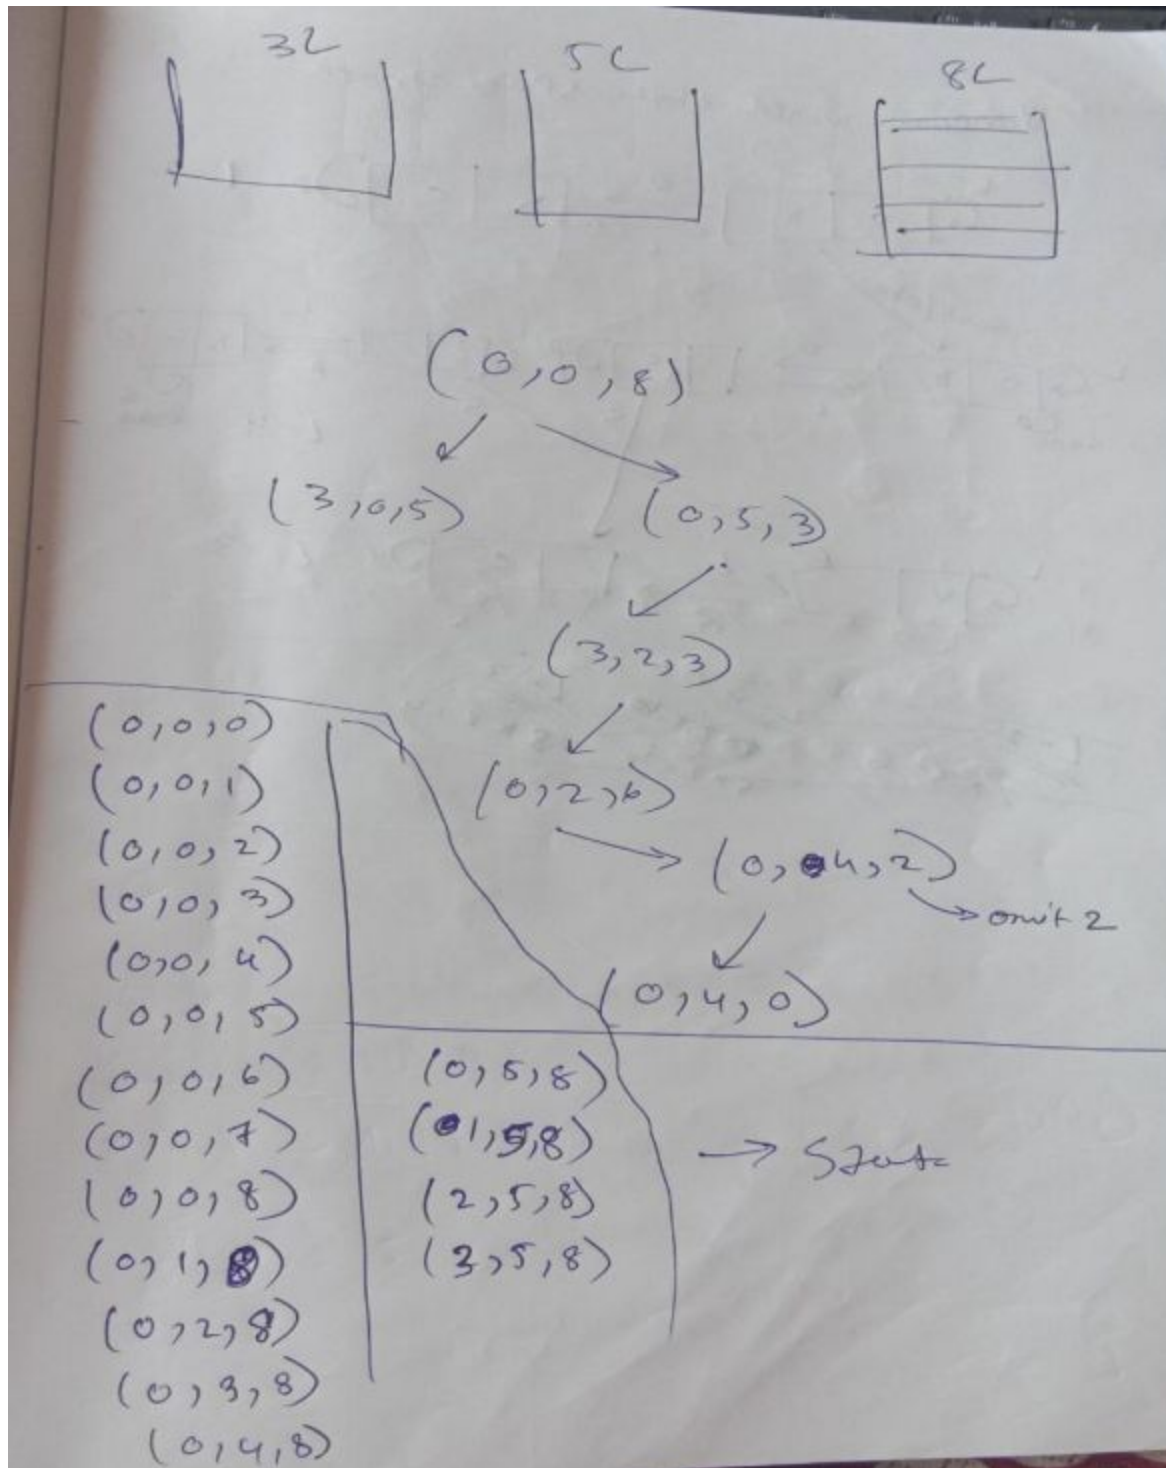 3L 5L 8L
(0,0,8)
(3,0,5) (0,5,3)
(3,2,3)
(0,2,6)
(0,4,2)
omit 2
(0,4,0)
(0,0,0)
(0,0,1)
(0,0,2)
(0,0,3)
(0,0,4)
(0,0,5)
(0,0,6)
(0,0,7)
(0,0,8)
(0,1,8)
(0,2,8)
(0,3,8)
(0,4,8)
(0,5,8)
(1,5,8)
(2,5,8)
(3,5,8)
→ State